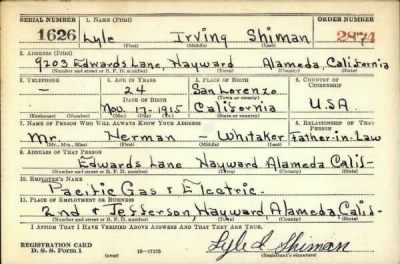 SERIAL NUMBER 1. NAME (Print) ORDER NUMBER
1626 Lyle Irving Shiman 2874
(First) (Middle) (Last)
2. ADDRESS (Print)
9203 Edwards Lane, Hayward Alameda, California
(Number and street or R. F. D. number) (Town) (County) (State)
3. TELEPHONE 4. AGE IN YEARS 5. PLACE OF BIRTH 6. COUNTRY OF CITIZENSHIP
- 24 San Lorenzo
DATE OF BIRTH (Town or county)
Nov. 17-1915 California U.S.A
(Exchange) (Number) (Mo.) (Day) (Yr.) (State or country)
7. NAME OF PERSON WHO WILL ALWAYS KNOW YOUR ADDRESS 8. RELATIONSHIP OF THAT PERSON
Mr. Herman - Whitaker Father-in-Law
(Mr., Mrs., Miss) (First) (Middle) (Last)
9. ADDRESS OF THAT PERSON
Edwards Lane Hayward Alameda Calif-
(Number and street or R. F. D. number) (Town) (County) (State)
10. EMPLOYER'S NAME
Pacific Gas & Electric-
11. PLACE OF EMPLOYMENT OR BUSINESS
2nd & Jefferson, Hayward Alameda Calif-
(Number and street or R. F. D. number) (Town) (County) (State)
I AFFIRM THAT I HAVE VERIFIED ABOVE ANSWERS AND THAT THEY ARE TRUE.
REGISTRATION CARD
D. S. S. Form 1 (over) 16-17105 Lyle I. Shiman
(Registrant's signature)